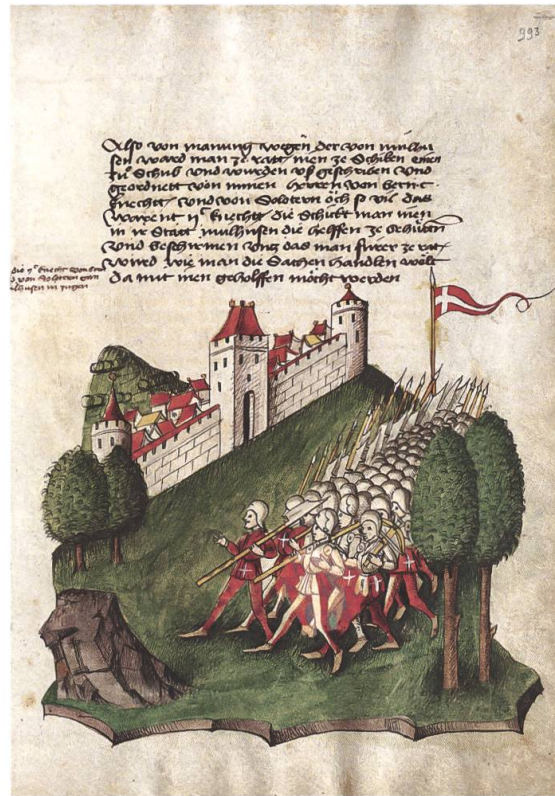 993
Also von manung wegen der von mülhu
sen ward man ze ratt inen ze Schiken einen
Schub und wurden uf geschriben und
geordnett von minen herren von bern
knecht und von Solotern öch so vil das
warent knecht die Schikt man inen
in ir Statt mulhusen die helffen ze behütten
und beschirmen untz das man furer ze ratt
wurd wie man die Sachen handlen wölt
da mit inen geholffen möcht werden
die knecht von
von Soloturn gan
in zugen